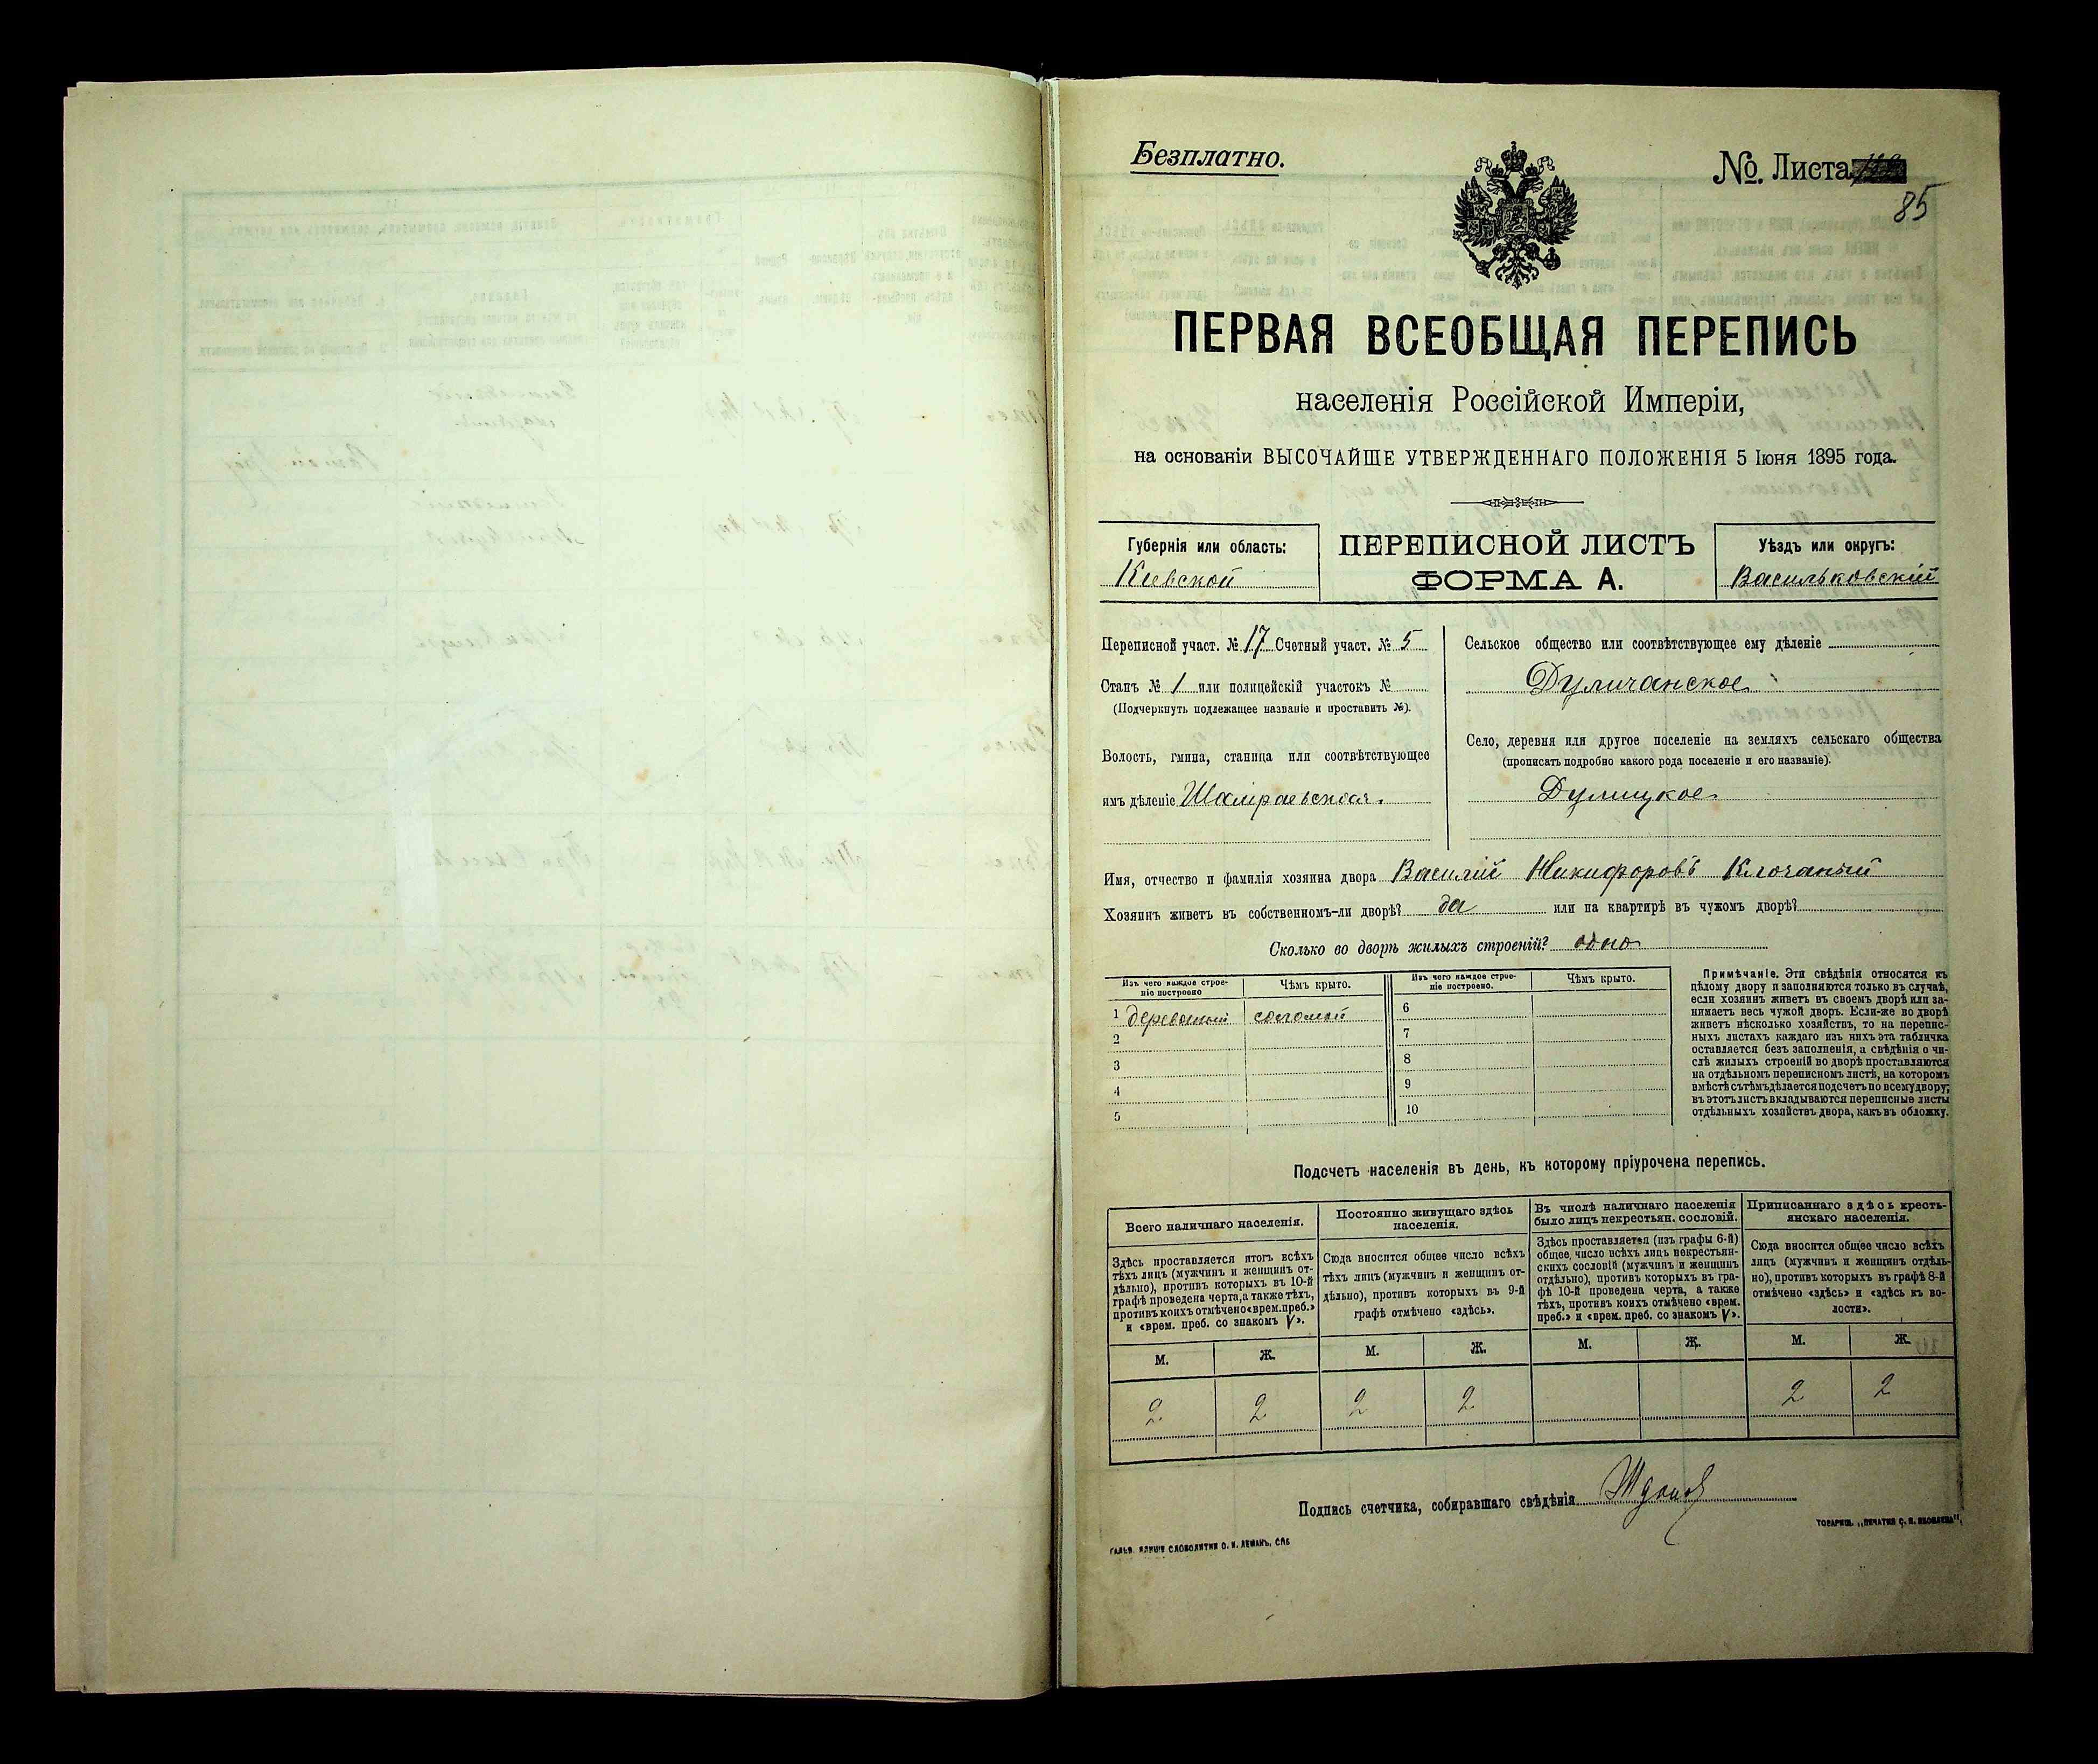 Безплатно.
№. Листа
85
ПЕРВАЯ ВСЕОБЩАЯ ПЕРЕПИСЬ
населенія Россійской Имперіи,
на основаніи ВЫСОЧАЙШЕ УТВЕРЖДЕННАГО ПОЛОЖЕНІЯ 5 Іюня 1895 года.
Губернія или область:
Киевской
ПЕРЕПИСНОЙ ЛИСТЪ
ФОРМА А.
Уѣздъ или округъ:
Васильковскій
Переписной участ. № 17 Счетный участ. № 5
Станъ № 1 или полицейскій участокъ №
(Подчеркнуть подлежащее названіе и проставить №).
Волость, гмина, станица или соотвѣтствующее
имъ дѣленіе Шамраевская.
Сельское общество или соотвѣтствующее ему дѣленіе
Дуличанское
Село, деревня или другое поселеніе на земляхъ сельскаго общества
(прописать подробно какого рода поселеніе и его названіе).
Дулицкое
Имя, отчество и фамилія хозяина двора Василій Никифоровъ Клочаный
Хозяинъ живетъ въ собственномъ-ли дворѣ? да или на квартирѣ въ чужомъ дворѣ?
Сколько во дворѣ жилыхъ строеній? одно
Изъ чего каждое строе-
ніе построено
Чѣмъ крыто.
Изъ чего каждое строе-
ніе построено.
Чѣмъ крыто.
1 деревяный соломой
2
3
4
5
6
7
8
9
10
Примѣчаніе. Эти свѣдѣнія относятся къ
цѣлому двору и заполняются только въ случаѣ,
если хозяинъ живетъ въ своемъ дворѣ или за-
нимаетъ весь чужой дворъ. Если-же во дворѣ
живетъ нѣсколько хозяйствъ, то на перепис-
ныхъ листахъ каждаго изъ нихъ эта табличка
оставляется безъ заполненія, а свѣдѣнія о чи-
слѣ жилыхъ строеній во дворѣ проставляются
на отдѣльномъ переписномъ листѣ, на которомъ
вмѣстѣ съ тѣмъ дѣлается подсчетъ по всему двору;
въ этотъ листъ вкладываются переписные листы
отдѣльныхъ хозяйствъ двора, какъ въ обложку.
Подсчетъ населенія въ день, къ которому пріурочена перепись.
Всего наличнаго населенія.
Здѣсь проставляется итогъ всѣхъ
тѣхъ лицъ (мужчинъ и женщинъ от-
дѣльно), противъ которыхъ въ 10-й
графѣ проведена черта, а также тѣхъ,
противъ коихъ отмѣчено «врем. преб.»
и «врем. преб. со знакомъ V».
Постоянно живущаго здѣсь
населенія.
Сюда вносится общее число всѣхъ
тѣхъ лицъ (мужчинъ и женщинъ от-
дѣльно), противъ которыхъ въ 9-й
графѣ отмѣчено «здѣсь».
Въ числѣ наличнаго населенія
было лицъ некрестьян. сословій.
Здѣсь проставляется (изъ графы 6-й)
общее число всѣхъ лицъ некрестьян-
скихъ сословій (мужчинъ и женщинъ
отдѣльно), противъ которыхъ въ гра-
фѣ 10-й проведена черта, а также
тѣхъ, противъ коихъ отмѣчено «врем.
преб.» и «врем. преб. со знакомъ V».
Приписаннаго здѣсь кресть-
янскаго населенія.
Сюда вносится общее число всѣхъ
лицъ (мужчинъ и женщинъ отдѣль-
но), противъ которыхъ въ графѣ 8-й
отмѣчено «здѣсь» и «здѣсь въ во-
лости».
М. Ж. М. Ж. М. Ж. М. Ж.
2 2 2 2 2 2
Подпись счетчика, собиравшаго свѣдѣнія
ГАЛЬВ. КЛИШЕ СЛОВОЛИТНИ О. И. ЛЕМАНЪ, СПБ
ТОВАРИЩ. „ПЕЧАТНЯ С. П. ЯКОВЛЕВА",